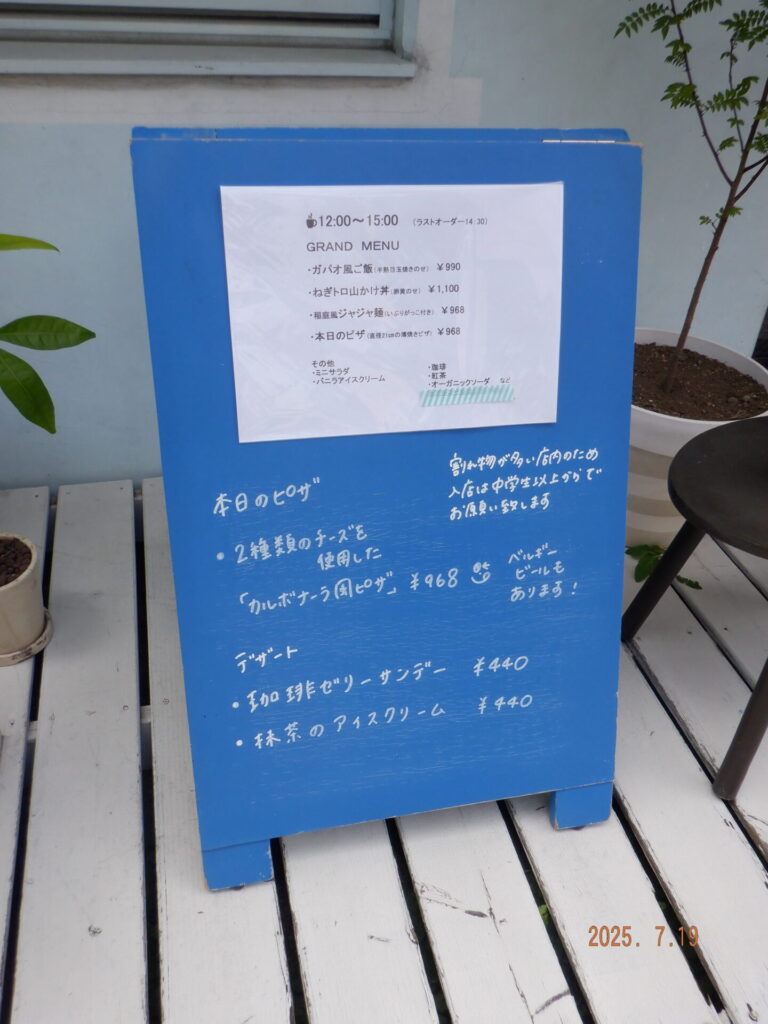 12:00～15:00 (ラストオーダー14:30)
GRAND MENU
・ガパオ風ご飯(半熟目玉焼きのせ) ￥990
・ねぎトロ山かけ丼(卵黄のせ) ￥1,100
・稲庭風ジャジャ麺(いぶりがっこ付き) ￥968
・本日のピザ(直径21cmの薄焼きピザ) ￥968
その他
・ミニサラダ
・バニラアイスクリーム
・珈琲
・紅茶
・オーガニックソーダ など
割れ物が多い店内のため
入店は中学生以上からで
お願い致します
本日のピザ
・2種類のチーズを
使用した
「カルボナーラ風ピザ」 ¥968
ベルギー
ビールも
あります!
デザート
・珈琲ゼリーサンデー ¥440
・抹茶のアイスクリーム ¥440
2025. 7.19